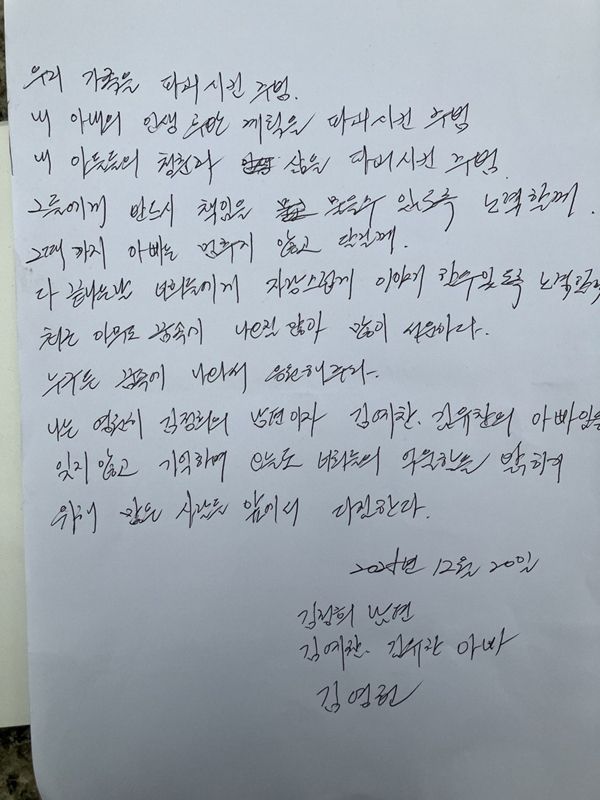 우리 가족을 파괴시킨 주범.
내 아내의 인생 후반 계획을 파괴시킨 주범
내 아들들의 청춘과 삶을 파괴시킨 주범.
그들에게 반드시 책임을 물을수 있도록 노력할께.
그때까지 아빠는 멈추지 않고 달릴께.
다 끝나는날 너희들에게 자랑스럽게 이야기 할수있도록 노력할
아무도 꿈속에 나오질 않아 많이 서운하다.
누구든 꿈속에 나와서 응원해주라.
나는 영원히 김정희의 남편이자 김예찬. 김유찬의 아빠임을
잊지않고 기억하며 오늘도 너희들의 억울함을 밝히기
위해 많은 사람들 앞에서 다짐한다.
12월 20일
김정희 남편
김예찬. 김유찬 아빠
김영헌